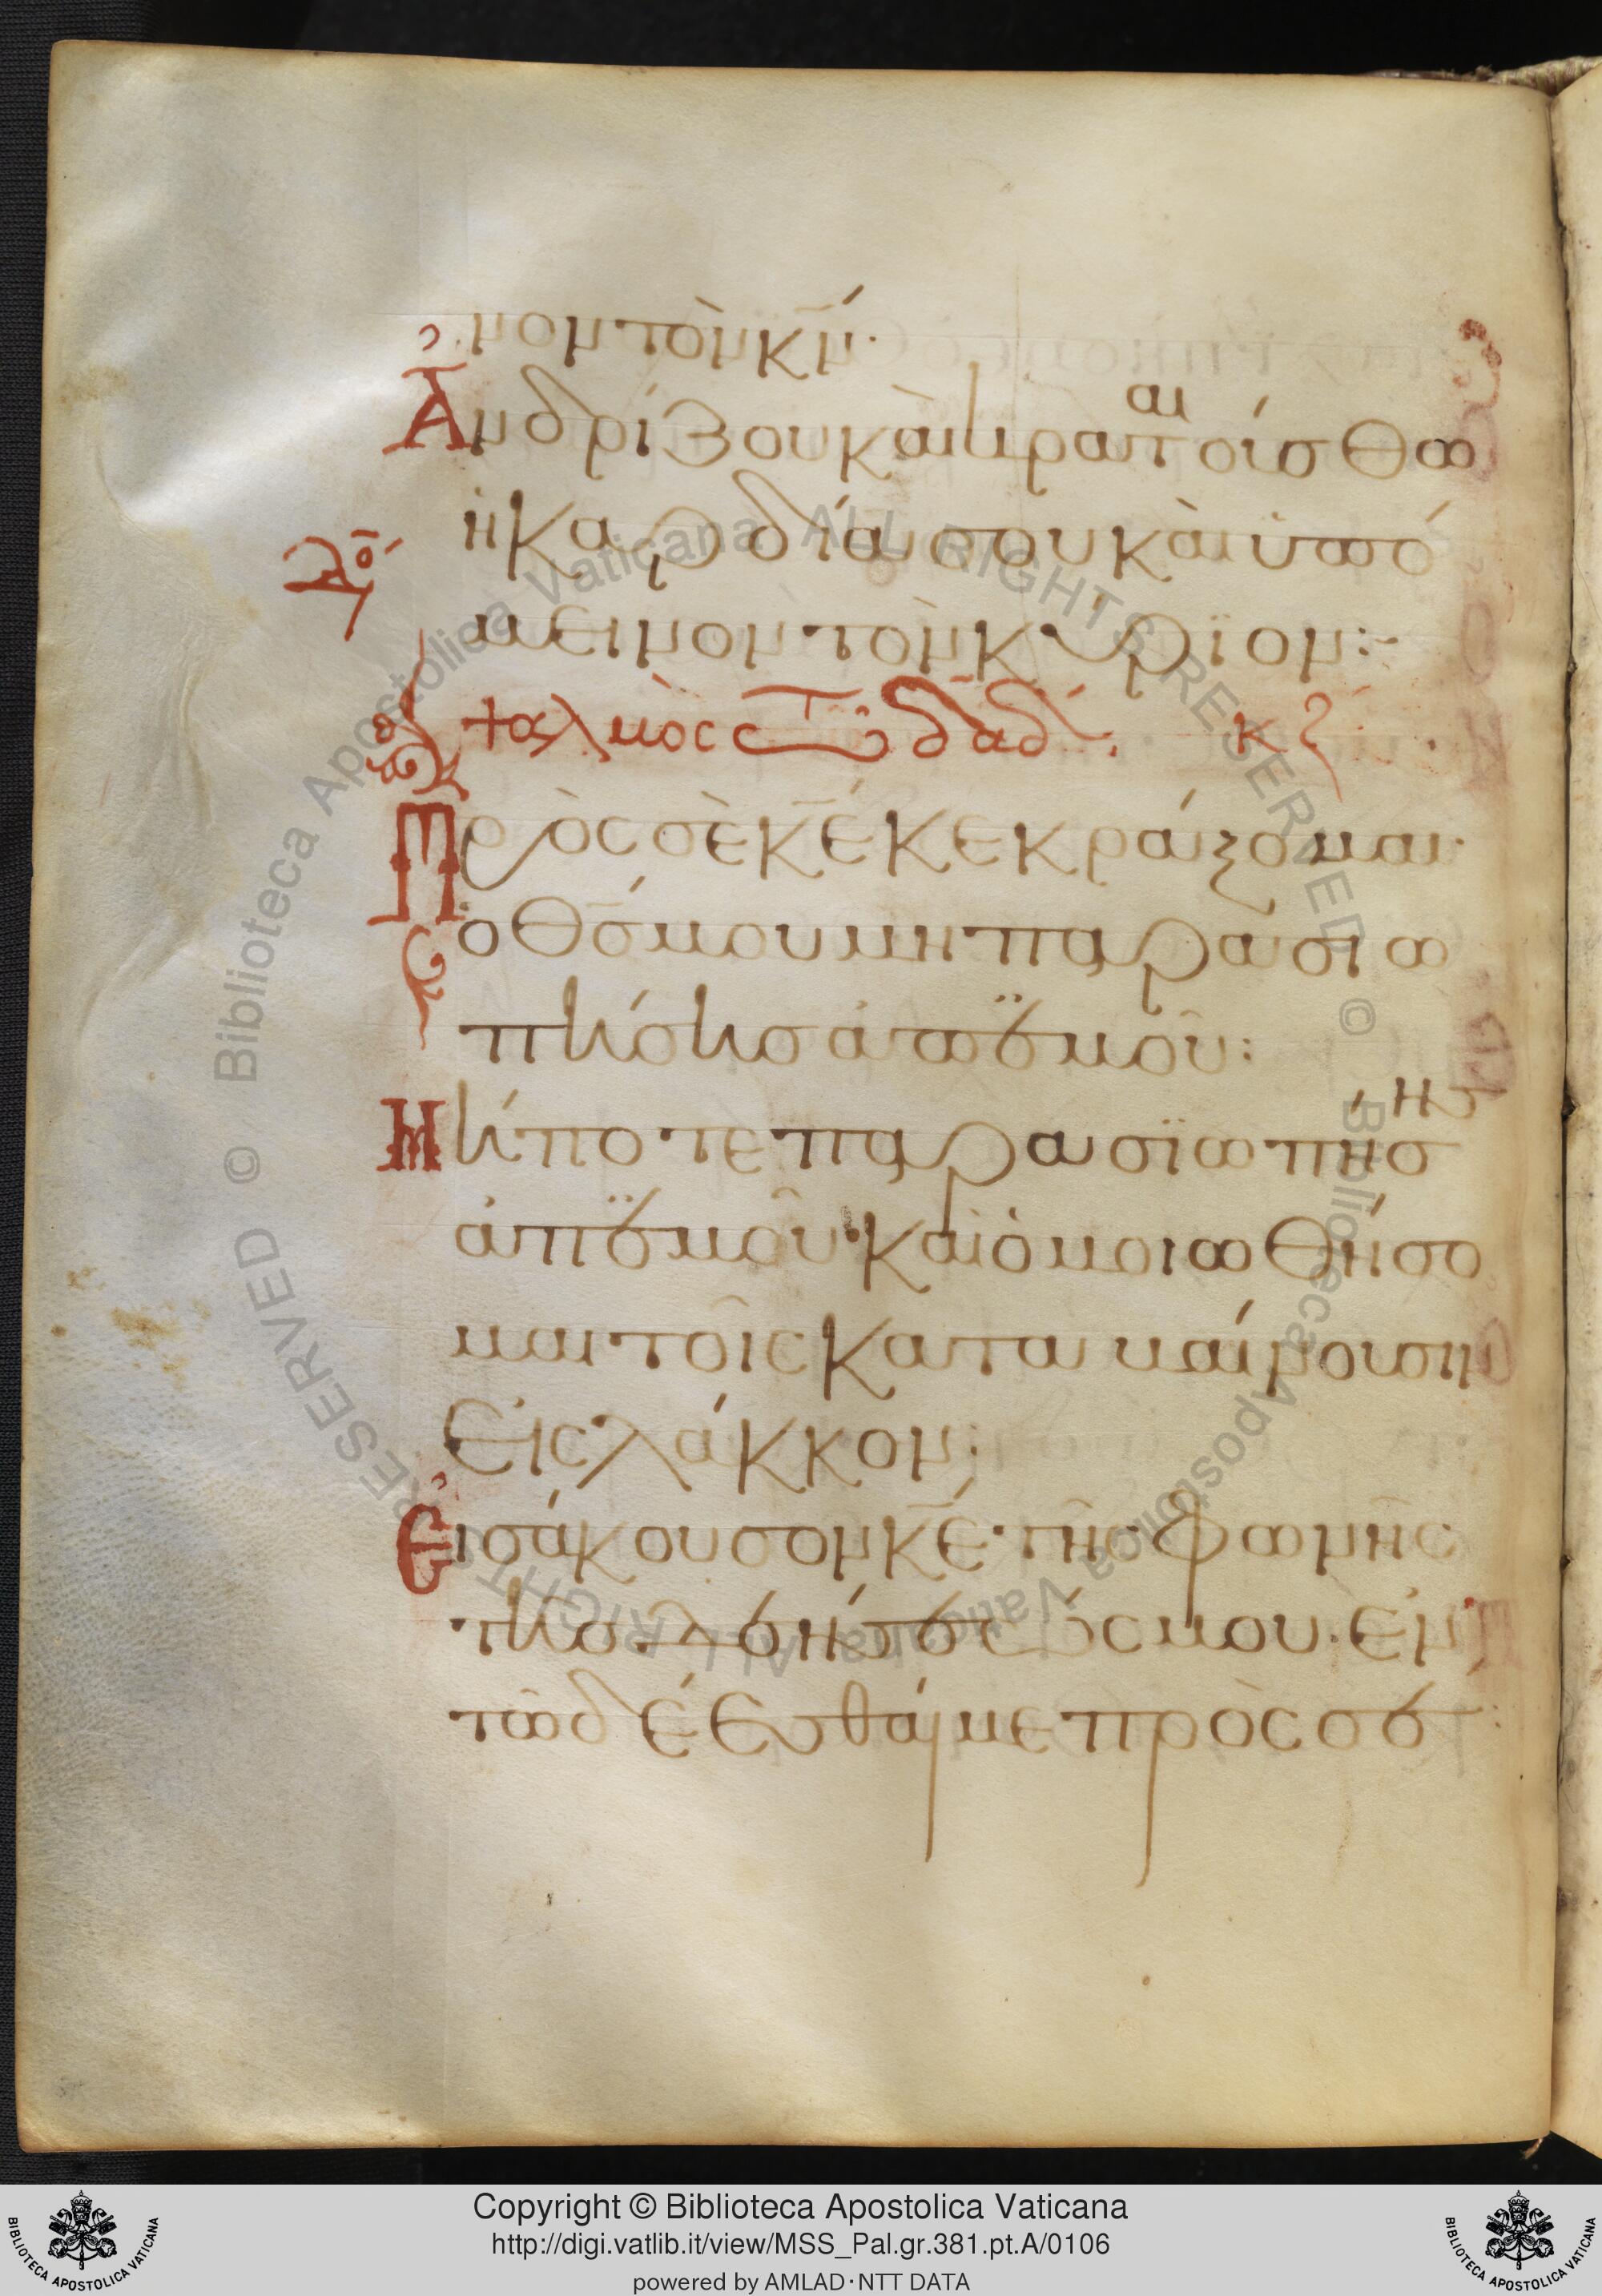 νον τὸν κ̅ν̅·
Ἀνδρίζου καὶ κραταιοίσθω
ἡ καρδία σου καὶ ὑπό
μεινον τὸν κύριον:-
ψαλμὸς τῶ δᾱδ̅ κζ
Πρὸς σὲ κ̅ε̅ κεκράξομαι·
ὁ θ̅ς̅ μου μὴ παρασιω
πήσης ἀπ' ἐμοῦ:
Μήποτε παρασϊωπήσης
ἀπ' ἐμοῦ· καὶ ὁμοιωθήσο
μαι τοῖς καταβαίνουσιν
εἰς λάκκον:
Εἰσάκουσον κ̅ε̅ τῆς φωνῆς
τῆς δεήσεώς μου· ἐν
τῶ δέεσθαί με πρὸς σέ:
Copyright © Biblioteca Apostolica Vaticana
http://digi.vatlib.it/view/MSS_Pal.gr.381.pt.A/0106
powered by AMLAD·NTT DATA
BIBLIOTECA APOSTOLICA VATICANA
BIBLIOTECA APOSTOLICA VATICANA
© Biblioteca Apostolica Vaticana ALL RIGHTS RESERVED
© Biblioteca Apostolica Vaticana ALL RIGHTS RESERVED